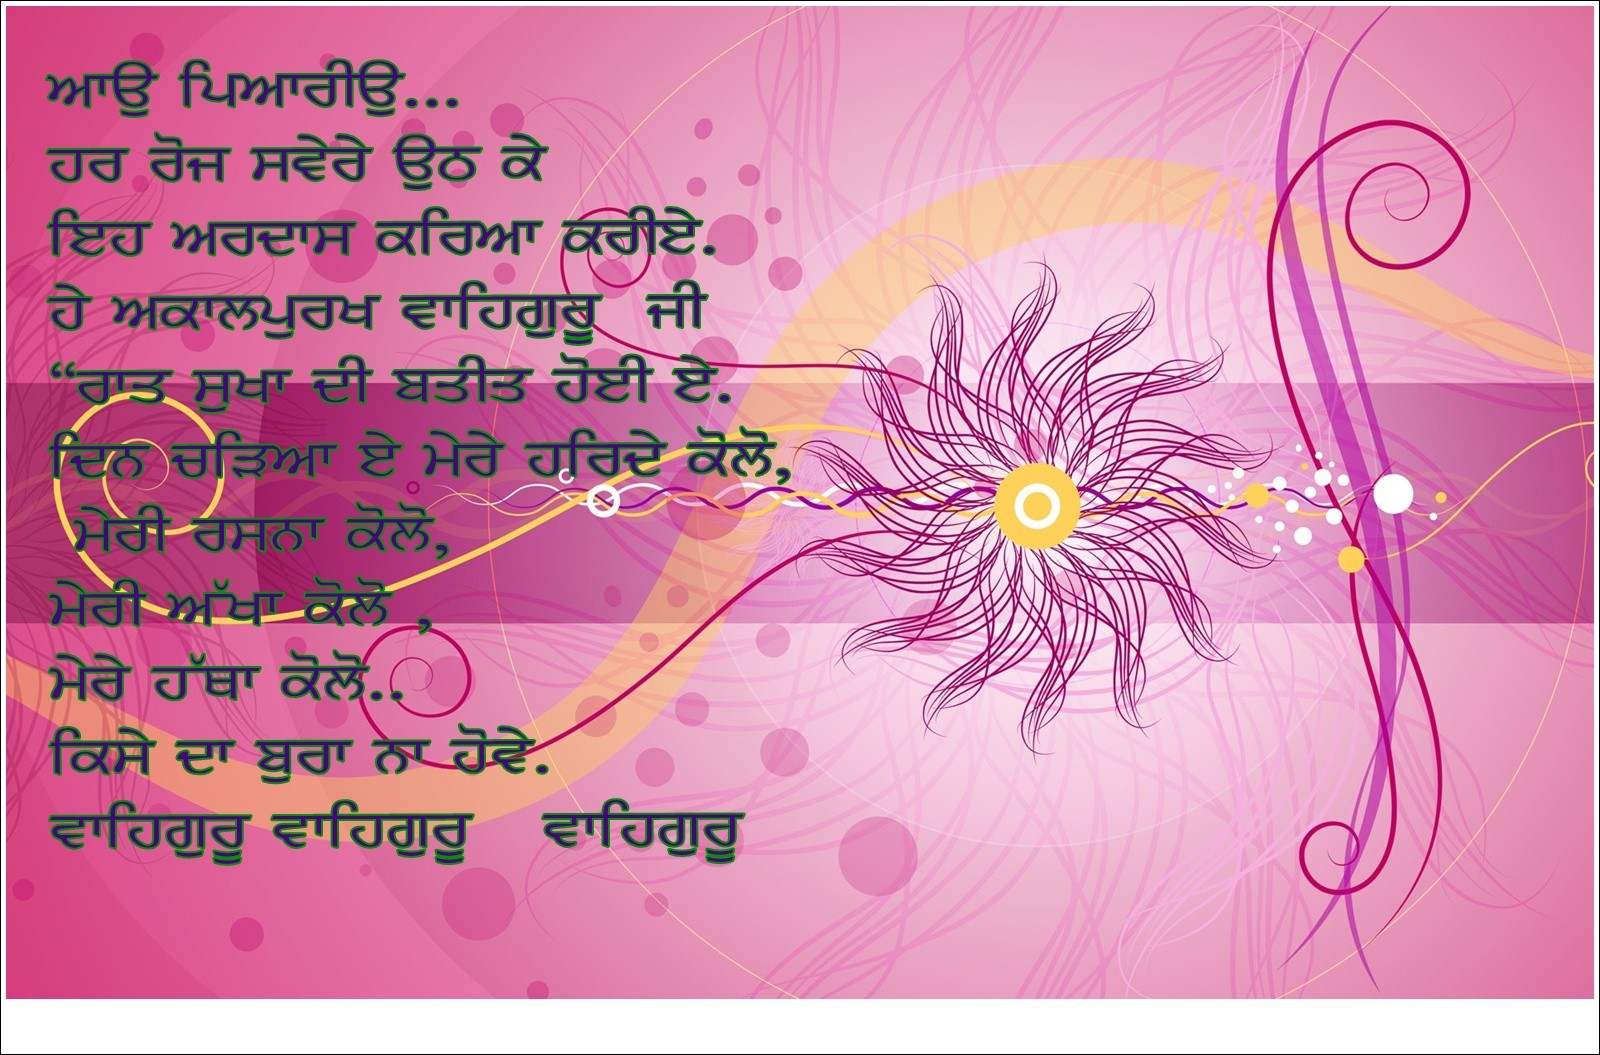 ਆਉ ਪਿਆਰੀਉ...
ਹਰ ਰੋਜ ਸਵੇਰੇ ਉਠ ਕੇ
ਇਹ ਅਰਦਾਸ ਕਰਿਆ ਕਰੀਏ.
ਹੇ ਅਕਾਲਪੁਰਖ ਵਾਹਿਗੁਰੂ ਜੀ
“ਰਾਤ ਸੁਖਾ ਦੀ ਬਤੀਤ ਹੋਈ ਏ.
ਦਿਨ ਚੜਿਆ ਏ ਮੇਰੇ ਹਰਿਦੇ ਕੋਲੋ,
ਮੇਰੀ ਰਸਨਾ ਕੋਲੋ,
ਮੇਰੀ ਅੱਖਾ ਕੋਲੋ ,
ਮੇਰੇ ਹੱਥਾ ਕੋਲੋ..
ਕਿਸੇ ਦਾ ਬੁਰਾ ਨਾ ਹੋਵੇ.
ਵਾਹਿਗੁਰੂ ਵਾਹਿਗੁਰੂ ਵਾਹਿਗੁਰੂ